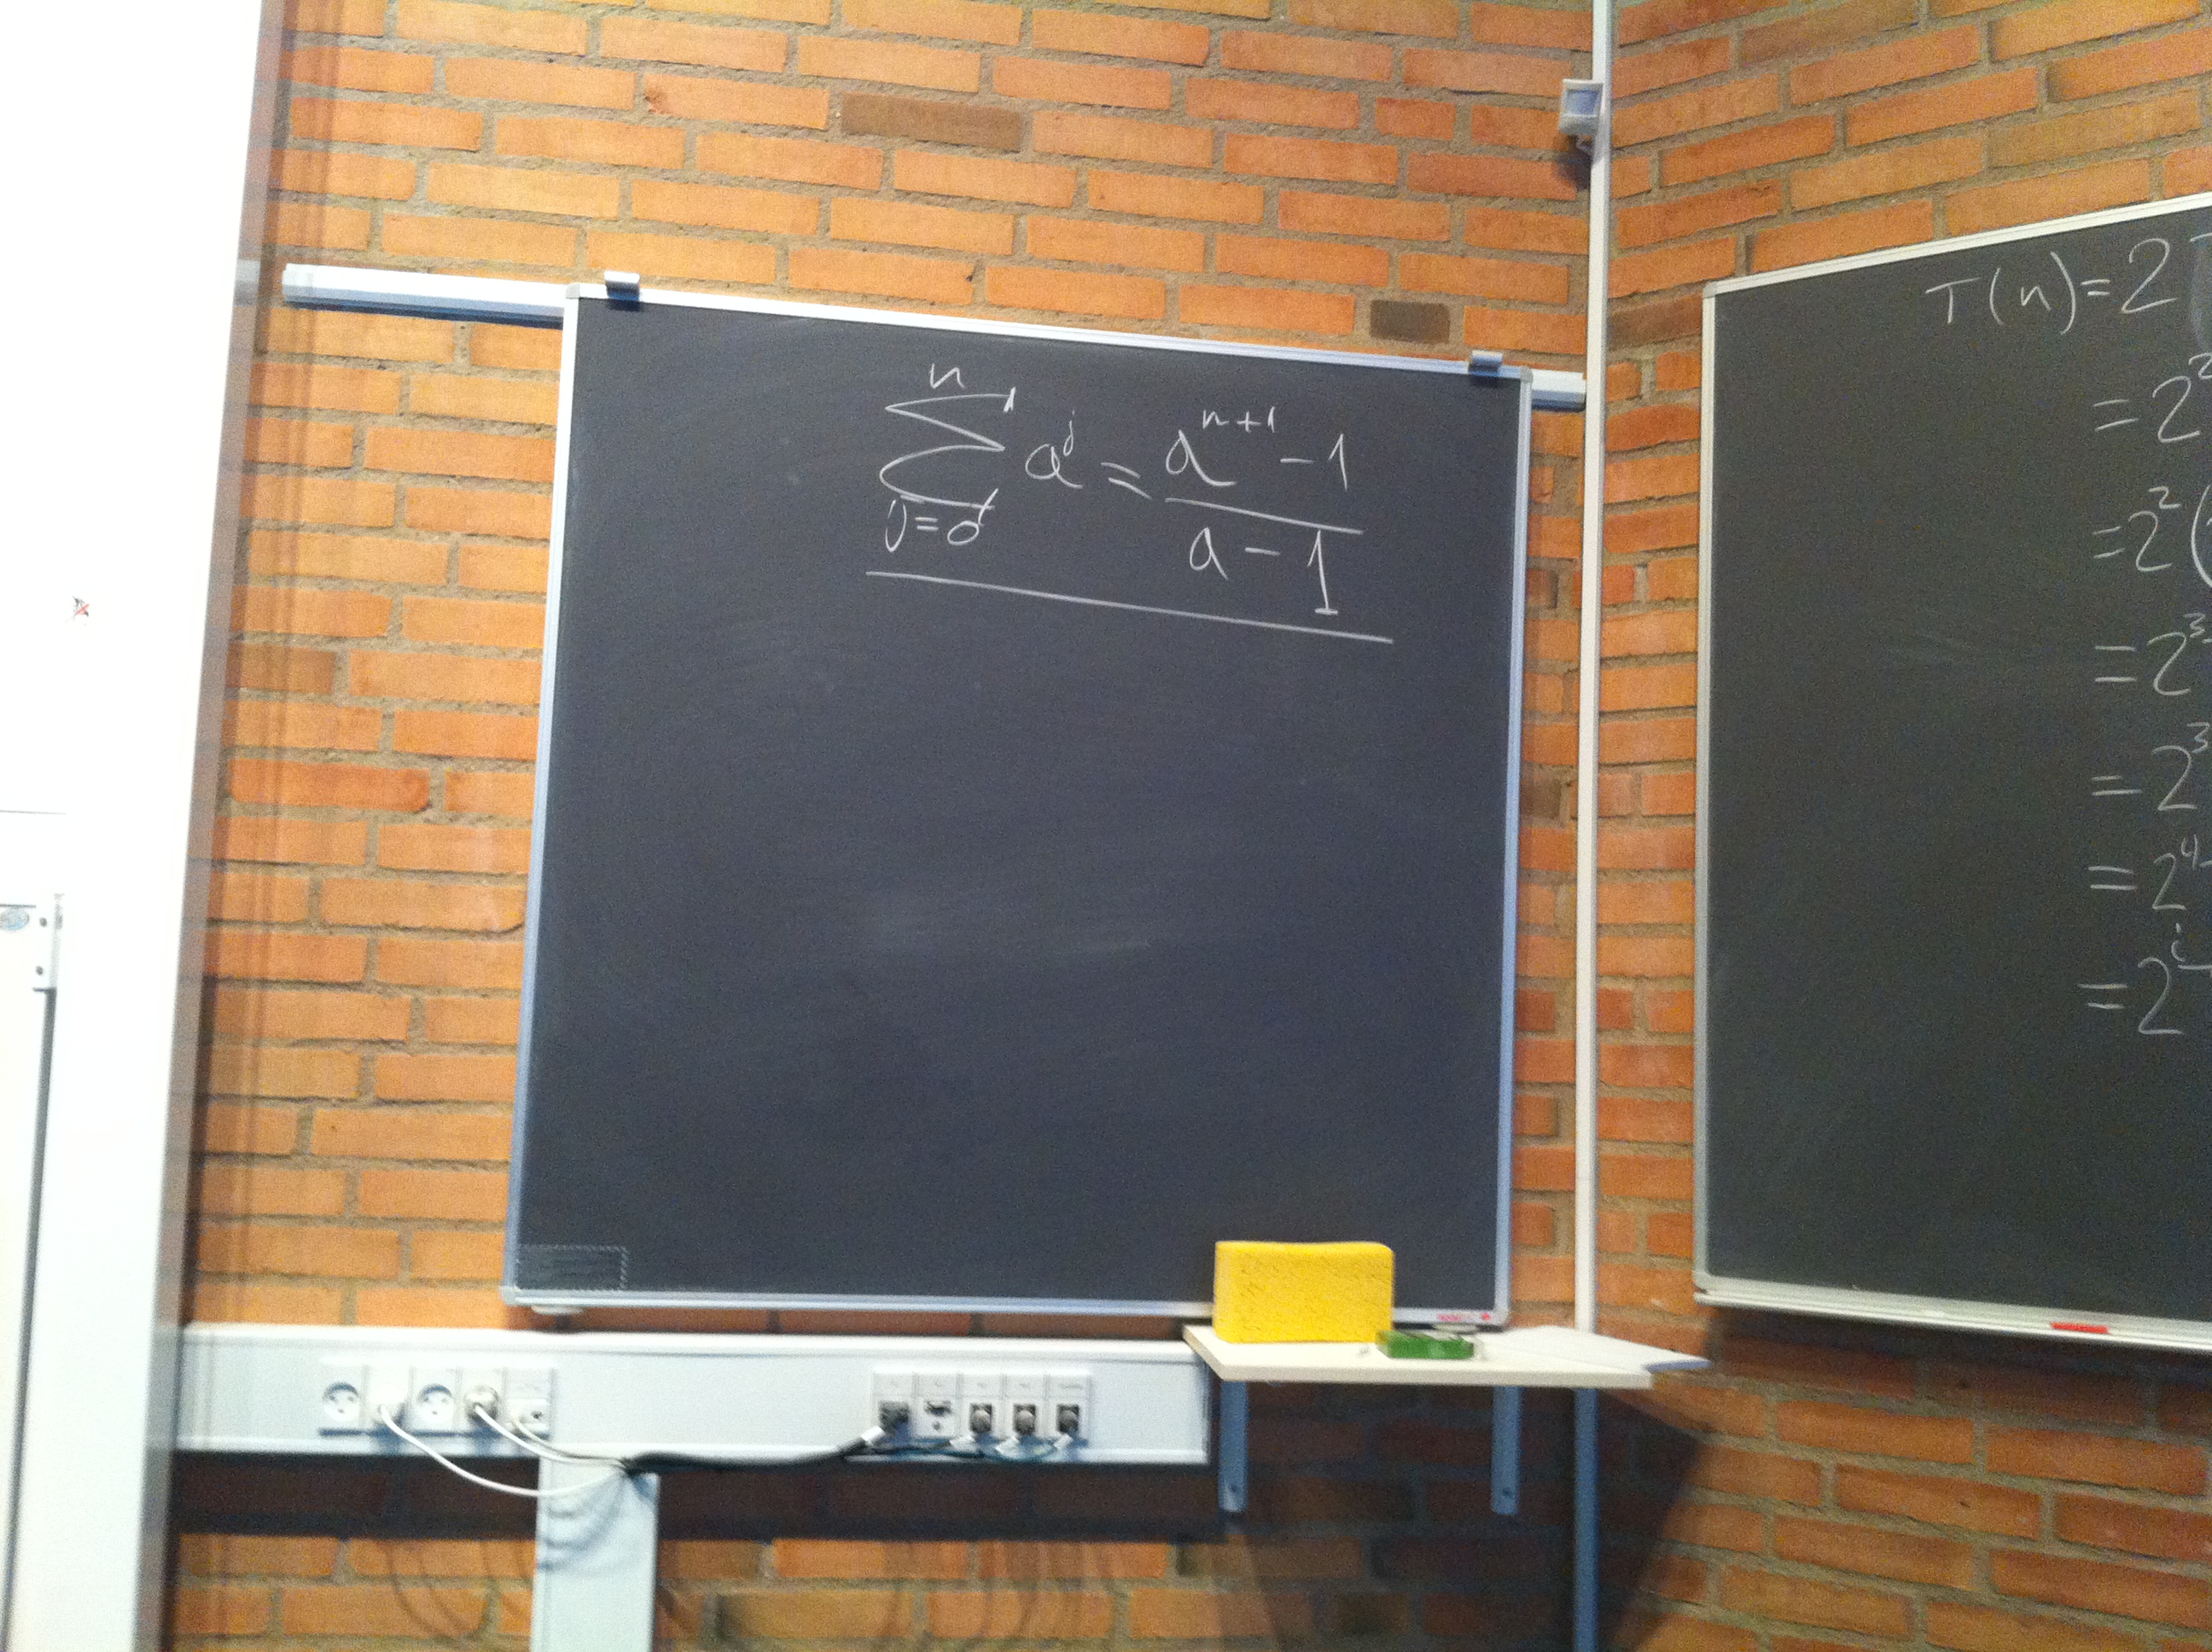 n
∑ a^j = (a^{n+1} - 1) / (a - 1)
j=0
T(n)=2
=2^2
=2^2(
=2^3
=2^3
=2^4
=2^i